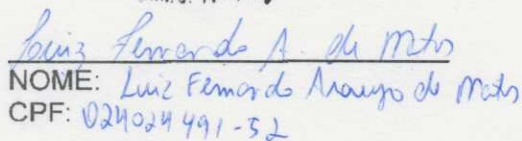 Luiz Fernando A. de Matos
NOME: Luiz Fernando Araujo de Matos
CPF: 024024491-52